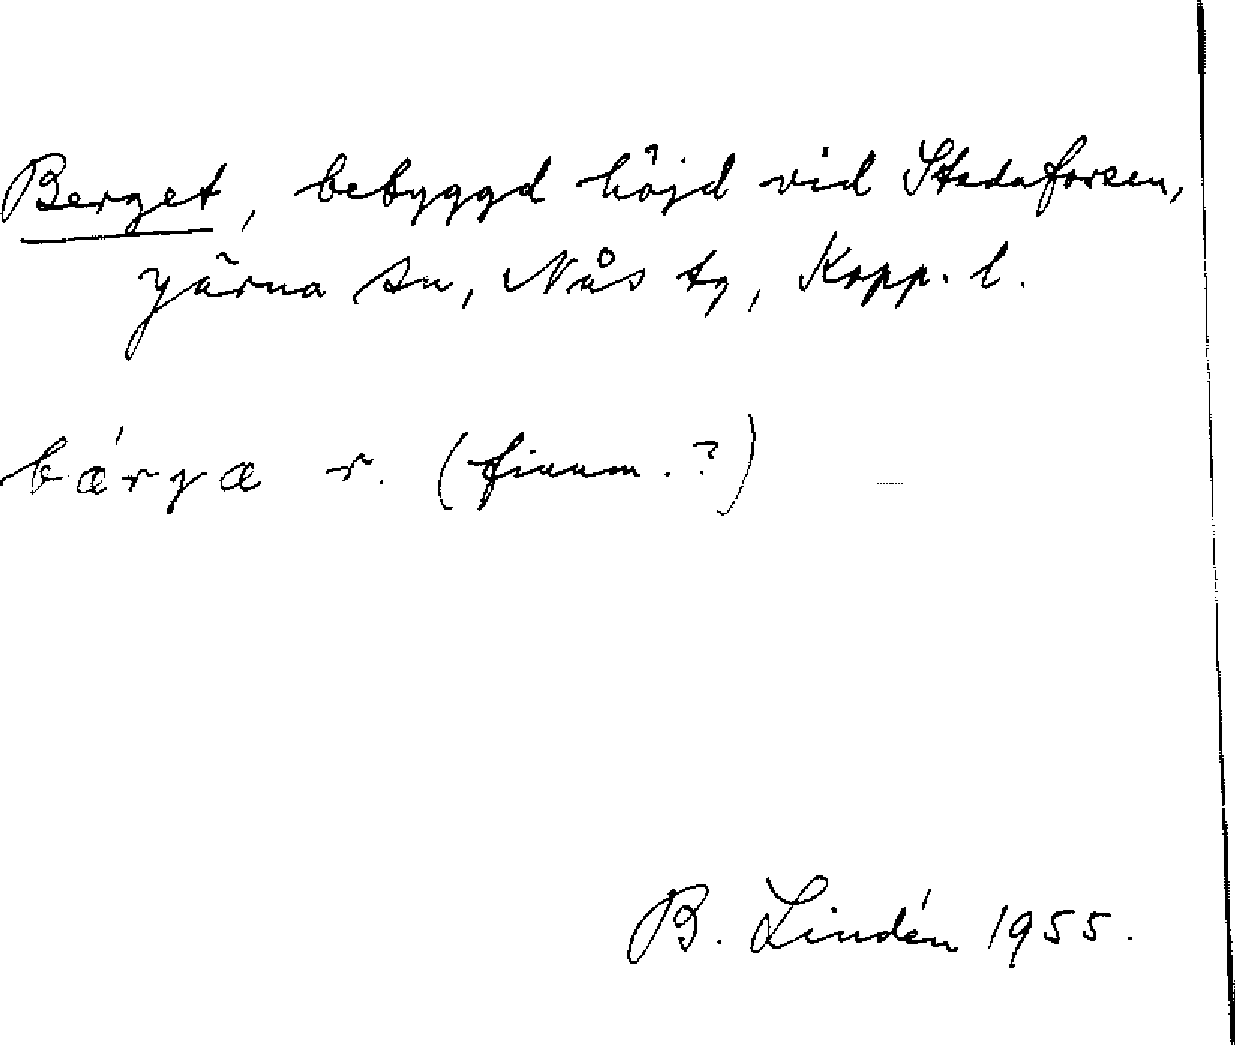 Berget, bebyggd höjd vid Stadaforsen,
Järna sn, Nås tg, Kopp. l.
bǽrgæ r. (finnm.?)
B. Lindén 1955.